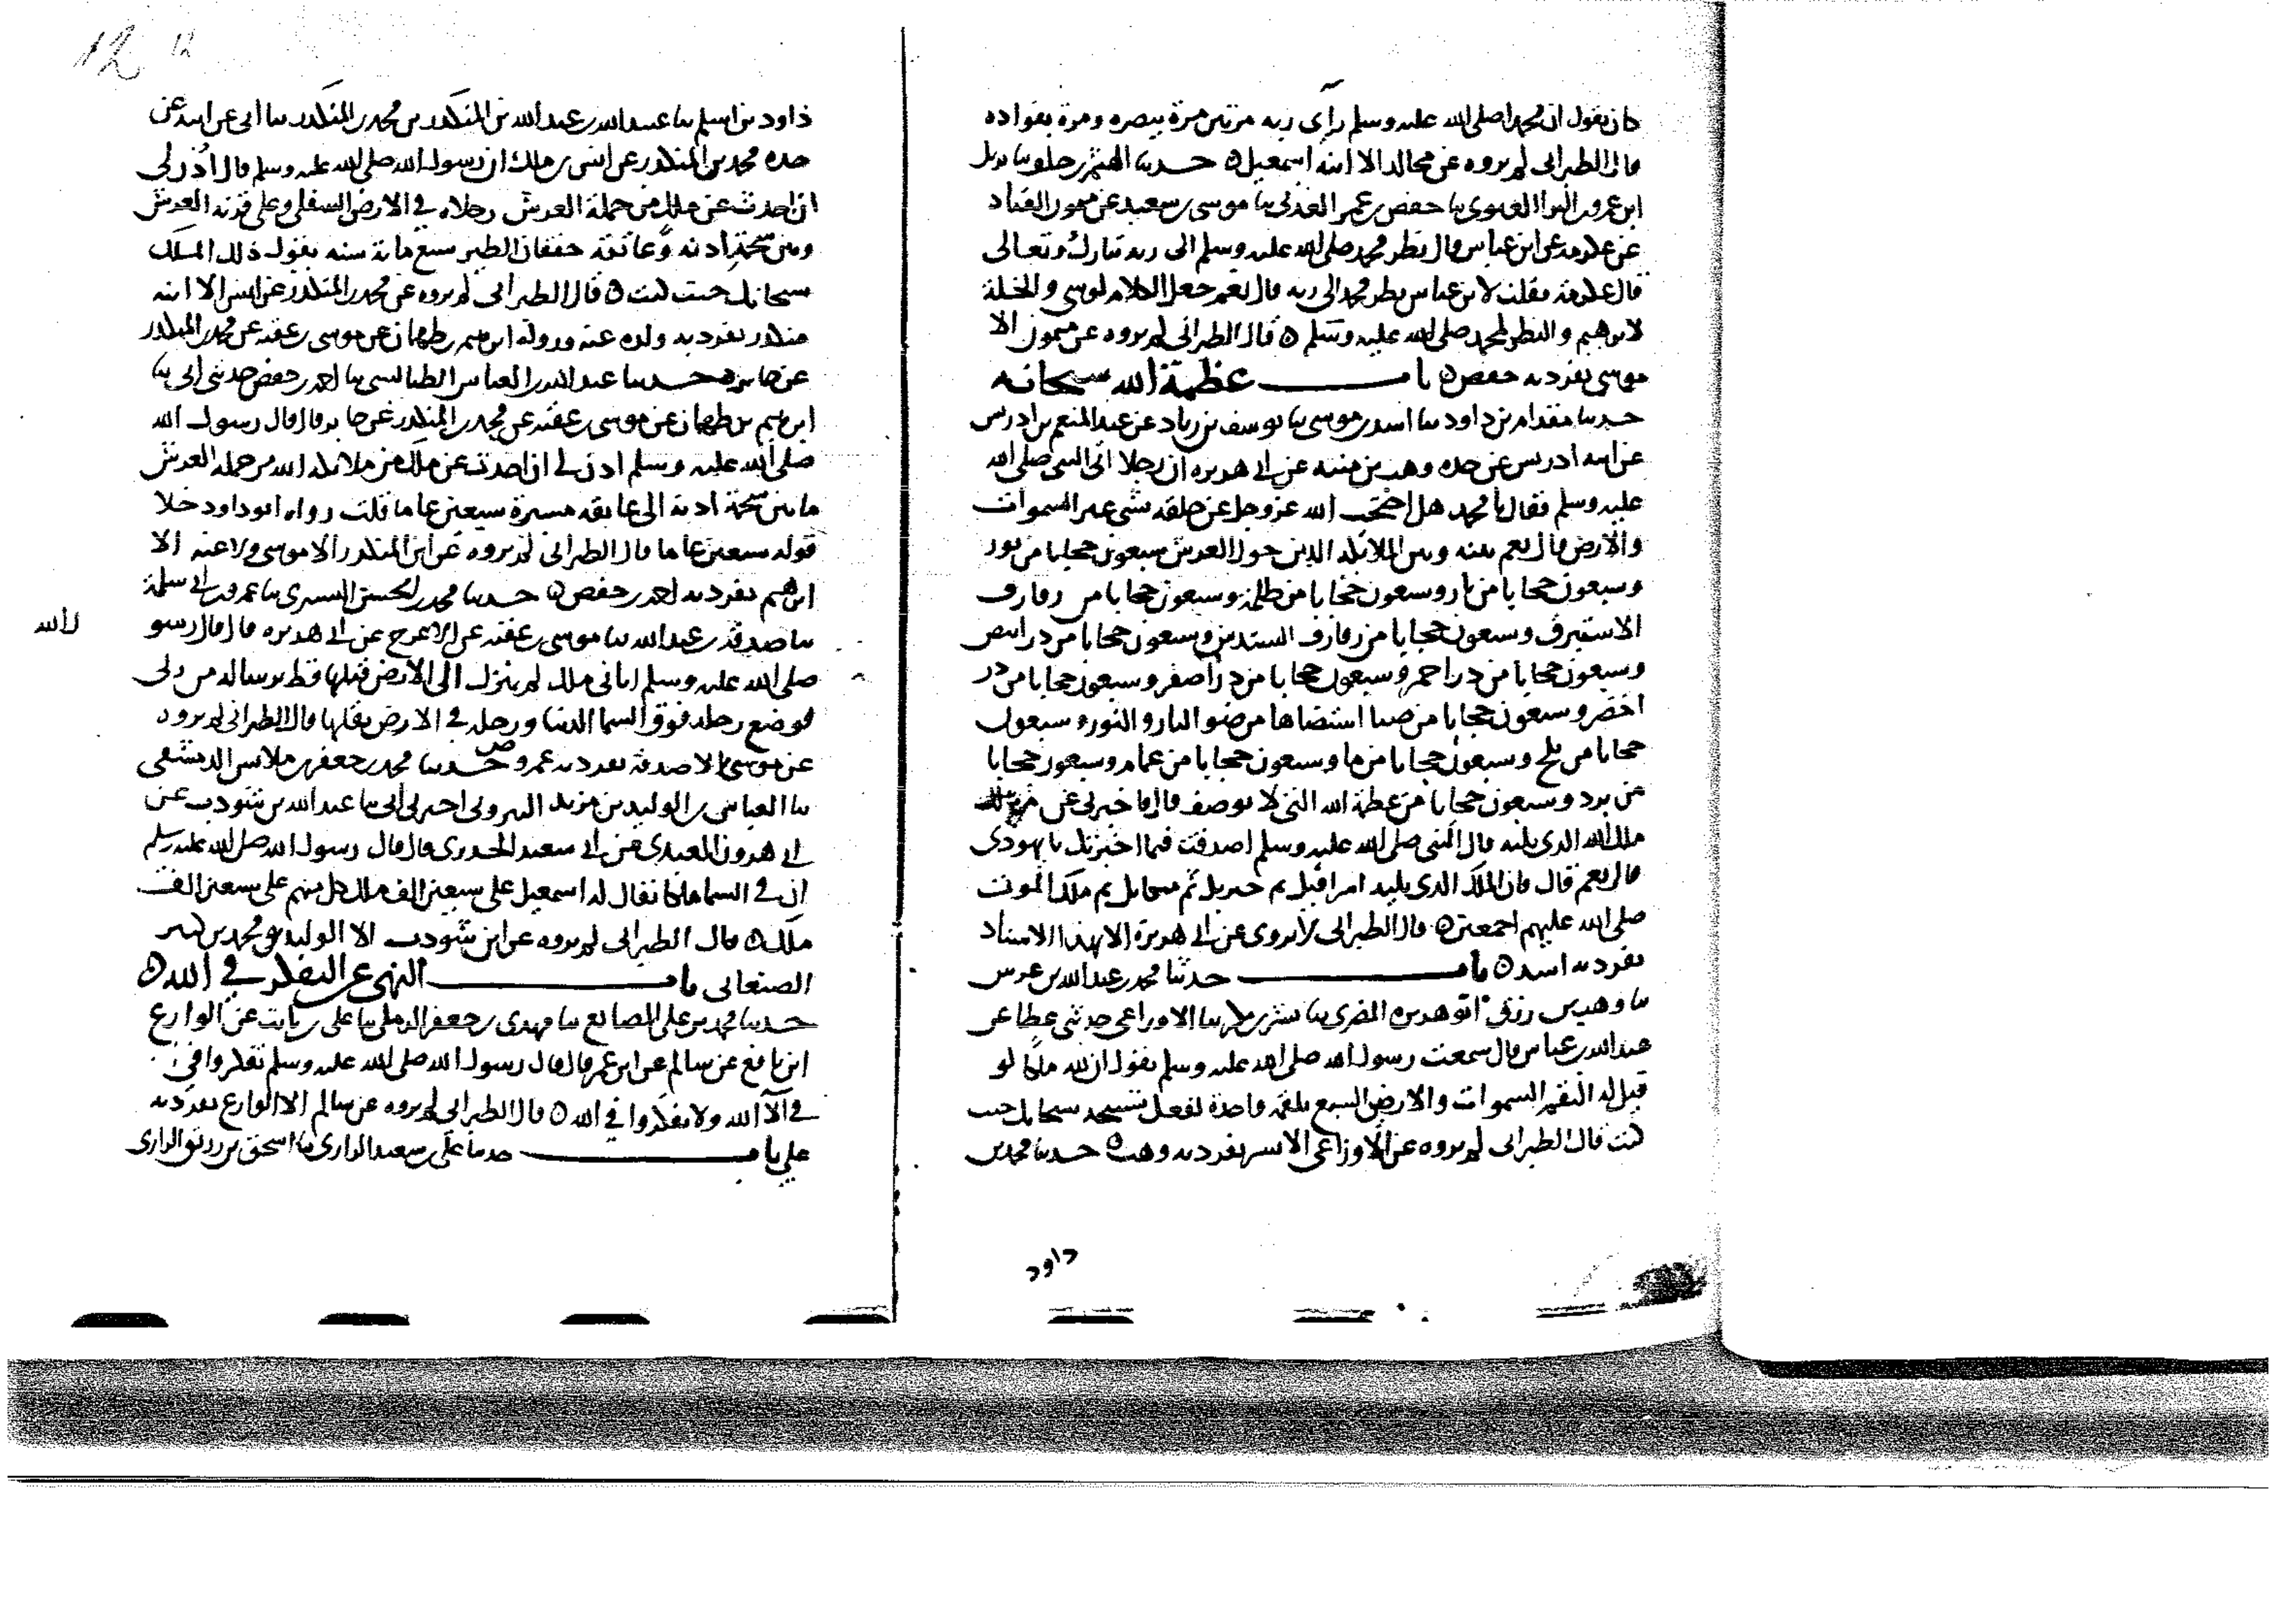 كان يقول ان محمدا صلى الله عليه وسلم رأى ربه مرتين مرة ببصره ومرة بفواده
قال الطبرانى لم يروه عن مجالد الا ابنه اسمعيل ٥ حدثنا الهيثم بن خلف ثنا يزيد
ابن عمرو بن البرا الغنوى ثنا حفص بن عمر العدنى ثنا موسى بن سعيد عن ميمون القناد
عن عكرمة عن ابن عباس قال نظر محمد صلى الله عليه وسلم الى ربه تبارك وتعالى
قال عكرمة فقلت لابن عباس نظر محمد الى ربه قال نعم جعل الكلام لموسى والخلة
لابرهيم والنظر لمحمد صلى الله عليه وسلم ٥ قال الطبرانى لم يروه عن ميمون الا
موسى تفرد به حفص ٥ باب عظمة الله سبحانه
حدثنا مقدام بن داود ثنا اسد بن موسى ثنا يوسف بن زياد عن عبد المنعم بن ادريس
عن ابيه ادريس عن جده وهب بن منبه عن ابى هريرة ان رجلا اتى النبى صلى الله
عليه وسلم فقال يا محمد هل احتجب الله عز وجل عن خلقه بشى غير السموات
والارض قال نعم بينه وبين الملائكة الذين حول العرش سبعون حجابا من نور
وسبعون حجابا من نار وسبعون حجابا من ظلمة وسبعون حجابا من رفارف
الاستبرق وسبعون حجابا من رفارف السندس وسبعون حجابا من در ابيض
وسبعون حجابا من در احمر وسبعون حجابا من در أصفر وسبعون حجابا من در
اخضر وسبعون حجابا من ضيا استضاها من ضو النار والنور وسبعون
حجابا من ثلج وسبعون حجابا من ما وسبعون حجابا من غمام وسبعون حجابا
من برد وسبعون حجابا من عظمة الله التى لا توصف قال فاخبرنى عن
ملك الله الذى يليه قال النبى صلى الله عليه وسلم اصدقت فيما اخبرتك يا يهودى
قال نعم قال فان الملك الذى يليه اسرافيل ثم جبريل ثم ميكايل ثم ملك الموت
صلى الله عليهم اجمعين ٥ قال الطبرانى لا يروى عن ابى هريرة الا بهذا الاسناد
تفرد به اسد ٥ باب حدثنا محمد بن عبد الله بن عرس
ثنا وهب بن رزق ابو هريرة المصرى ثنا بشر بن بكر ثنا الاوزاعى حدثنى عطا عن
عبد الله بن عباس قال سمعت رسول الله صلى الله عليه وسلم يقول ان لله ملكا لو
قيل له التقم السموات والارض السبع بلقمة واحدة لفعل تسبيحه سبحانك حيث
كنت قال الطبرانى لم يروه عن الاوزاعى الا بشر تفرد به وهب ٥ حدثنا محمد بن
داود
12 12
داود بن اسلم ثنا عبيد الله بن عبد الله بن المنكدر بن محمد بن المنكدر ثنا ابى عن ابيه عن
جده محمد بن المنكدر عن انس بن ملك ان رسول الله صلى الله عليه وسلم قال اذن لى
ان احدث عن ملك من حملة العرش رجلاه فى الارض السفلى وعلى قرنه العرش
وبين شحمة اذنه وعاتقه خفقان الطير سبع مائة سنة يقول ذلك الملك
سبحانك حيث كنت ٥ قال الطبرانى لم يروه عن محمد بن المنكدر عن انس الا ابنه
منكدر تفرد به ولده عنه ورواه ابرهيم بن طهمان عن موسى بن عقبة عن محمد بن المنكدر
عن جابر حدثنا عبد الله بن العباس الطيالسى ثنا احمد بن حفص حدثنى ابى ثنا
ابرهيم بن طهمان عن موسى بن عقبة عن محمد بن المنكدر عن جابر قال قال رسول الله
صلى الله عليه وسلم اذن لى ان احدث عن ملك من ملائكة الله من حملة العرش
ما بين شحمة اذنه الى عاتقه مسيرة سبعين عاما قلت رواه ابو داود خلا
قوله سبعين عاما قال الطبرانى لم يروه عن ابن المنكدر الا موسى ولا عنه الا
ابرهيم تفرد به احمد بن حفص ٥ حدثنا محمد بن الحسن ثنا عمرو بن ابى سلمة
ثنا صدقة بن عبد الله ثنا موسى بن عقبة عن الاعرج عن ابى هريرة قال قال رسو
ل الله
صلى الله عليه وسلم اتانى ملك لم ينزل الى الارض قبلها قط برسالة من ربى
فوضع رجله فوق السما الدنيا ورجله فى الارض يقلها قال الطبرانى لم يروه
عن موسى الا صدقة تفرد به عمرو حدثنا محمد بن جعفر بن ملاس الدمشقى
ثنا العباس بن الوليد بن مزيد البيروتى اخبرنى ابى ثنا عبد الله بن شوذب عن
ابى هرون العبدى عن ابى سعيد الخدرى قال قال رسول الله صلى الله عليه وسلم
ان فى السما ملكا يقال له اسمعيل على سبعين الف ملك كل منهم على سبعين الف
ملك ٥ قال الطبرانى لم يروه عن ابن شوذب الا الوليد ومحمد بن كثير
الصنعانى باب النهى عن التفكر فى الله ٥
حدثنا محمد بن على الصائع ثنا مهدى بن جعفر الرملى ثنا على بن ثابت عن الوازع
ابن نافع عن سالم عن ابن عمر قال قال رسول الله صلى الله عليه وسلم تفكروا فى
فى آلآ الله ولا تفكروا فى الله ٥ قال الطبرانى لم يروه عن سالم الا الوازع تفرد به
على باب حدثنا على بن سعيد الرازى ثنا اسحق بن زريق الرازى